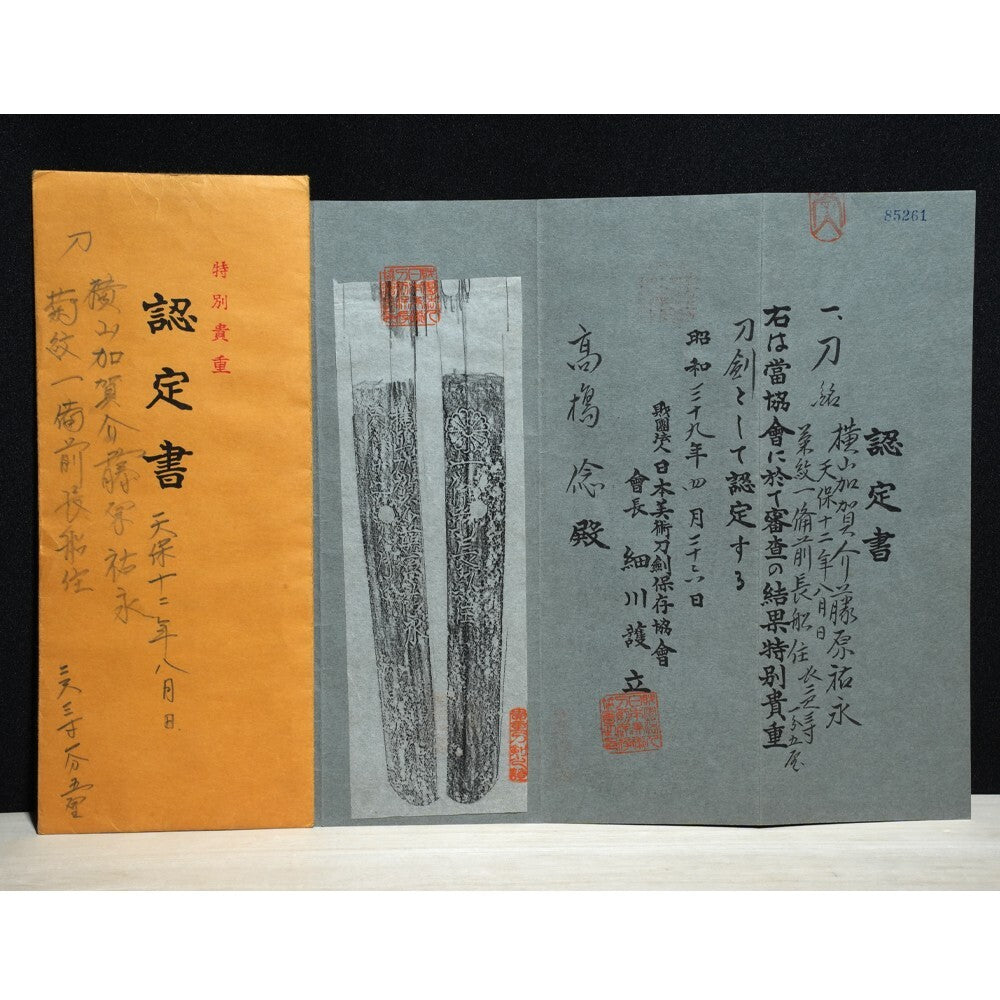 特別貴重
認定書
刀
横山加賀介藤原祐永
菊紋一備前長船住
天保十二年八月日
二尺三寸一分五厘
85261
認定書
一、刀 銘 横山加賀介藤原祐永
天保十二年八月日
菊紋一備前長船住 長二尺三寸一分五厘
右は當協會に於て審査の結果特別貴重
刀劍として認定する
昭和三十九年四月二十六日
財團法人日本美術刀劍保存協會
會長 細川護立
高橋 殿